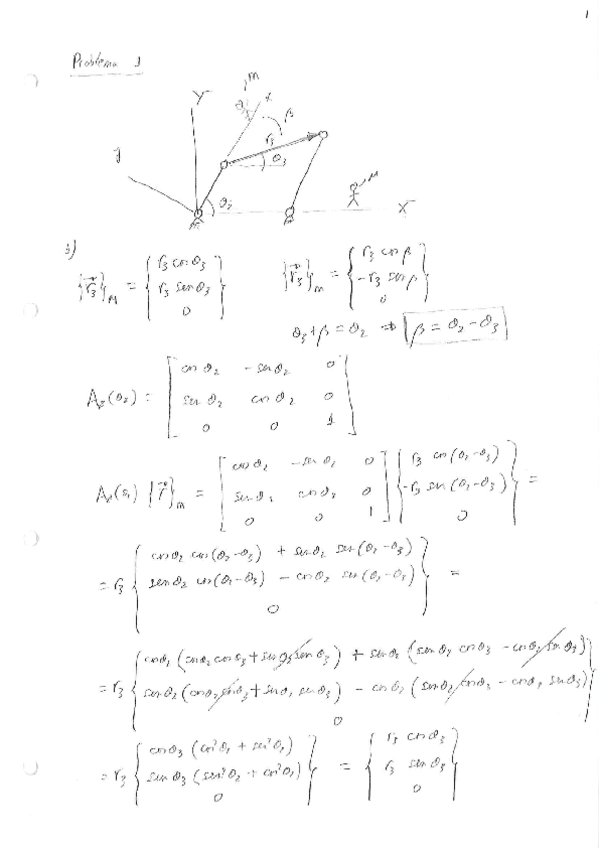 1
Problema 1
m
Y
x
β
θ
r₃
y
θ₃
θ₂
M
X
{r⃗₃}_M = { r₃ cos θ₃ ; r₃ sen θ₃ ; 0 }   {r⃗₃}_m = { r₃ cos β ; -r₃ sen β ; 0 }
θ₃ + β = θ₂ ⇒ β = θ₂ - θ₃
A_z(θ₂) = [ cos θ₂  -sen θ₂  0 ; sen θ₂  cos θ₂  0 ; 0  0  1 ]
A_z(θ₂) {r⃗}_m = [ cos θ₂  -sen θ₂  0 ; sen θ₂  cos θ₂  0 ; 0  0  1 ] { r₃ cos(θ₂-θ₃) ; -r₃ sen(θ₂-θ₃) ; 0 } =
= r₃ { cos θ₂ cos(θ₂-θ₃) + sen θ₂ sen(θ₂-θ₃) ; sen θ₂ cos(θ₂-θ₃) - cos θ₂ sen(θ₂-θ₃) ; 0 } =
= r₃ { cos θ₂ (cos θ₂ cos θ₃ + sen θ₂ sen θ₃) + sen θ₂ (sen θ₂ cos θ₃ - cos θ₂ sen θ₃) ; sen θ₂ (cos θ₂ cos θ₃ + sen θ₂ sen θ₃) - cos θ₂ (sen θ₂ cos θ₃ - cos θ₂ sen θ₃) ; 0 }
= r₃ { cos θ₃ (cos² θ₂ + sen² θ₂) ; sen θ₃ (sen² θ₂ + cos² θ₂) ; 0 } = { r₃ cos θ₃ ; r₃ sen θ₃ ; 0 }